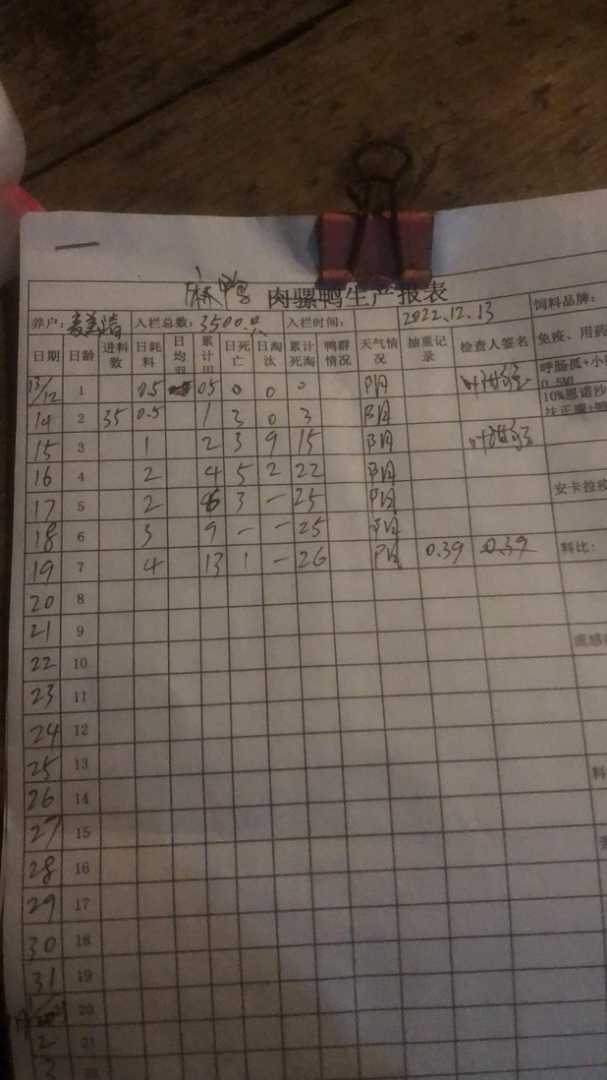 麻鸭 肉骡鸭生产报表
养户： 入栏总数：3500只 入栏时间： 2022.12.13 饲料品牌：
日期 日龄 进料数 日耗料 日均 累计 日死亡 日淘汰 累计死淘 鸭群情况 天气情况 抽重记录 检查人签名 免疫、用药
13/12 1 0.5 05 0 0 0 阴 呼肠孤+小 0.5ML
14 2 35 0.5 1 3 0 3 阴 10%恩诺沙
15 3 1 2 3 9 15 阴
16 4 2 4 5 2 22 阴
17 5 2 6 3 - 25 阴 安卡拉疫
18 6 3 9 - - 25 阴
19 7 4 13 1 - 26 阴 0.39 0.39 料比：
20 8
21 9
22 10
23 11
24 12
25 13
26 14 料
27 15
28 16
29 17
30 18
31 19
20
2 21
3